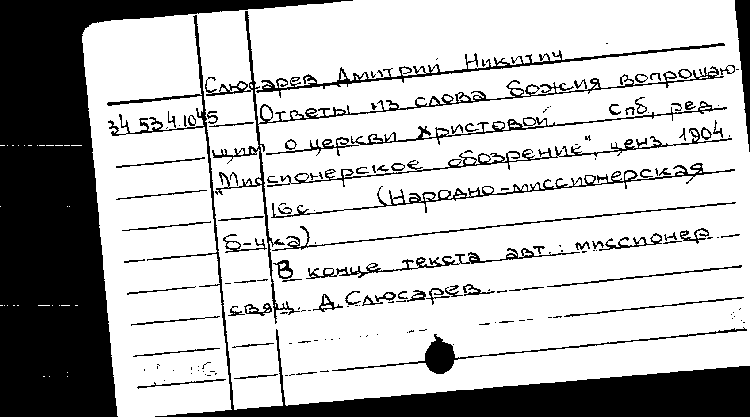 Слюсарев, Дмитрий Никитич
34.534.1045 Ответы из слова божия вопрошаю-
щим о церкви христовой. Спб, ред.
"Миссионерское обозрение", ценз. 1904.
16с (Народно-миссионерская
б-чка).
В конце текста авт.: миссионер
свящ. Д.Слюсарев.